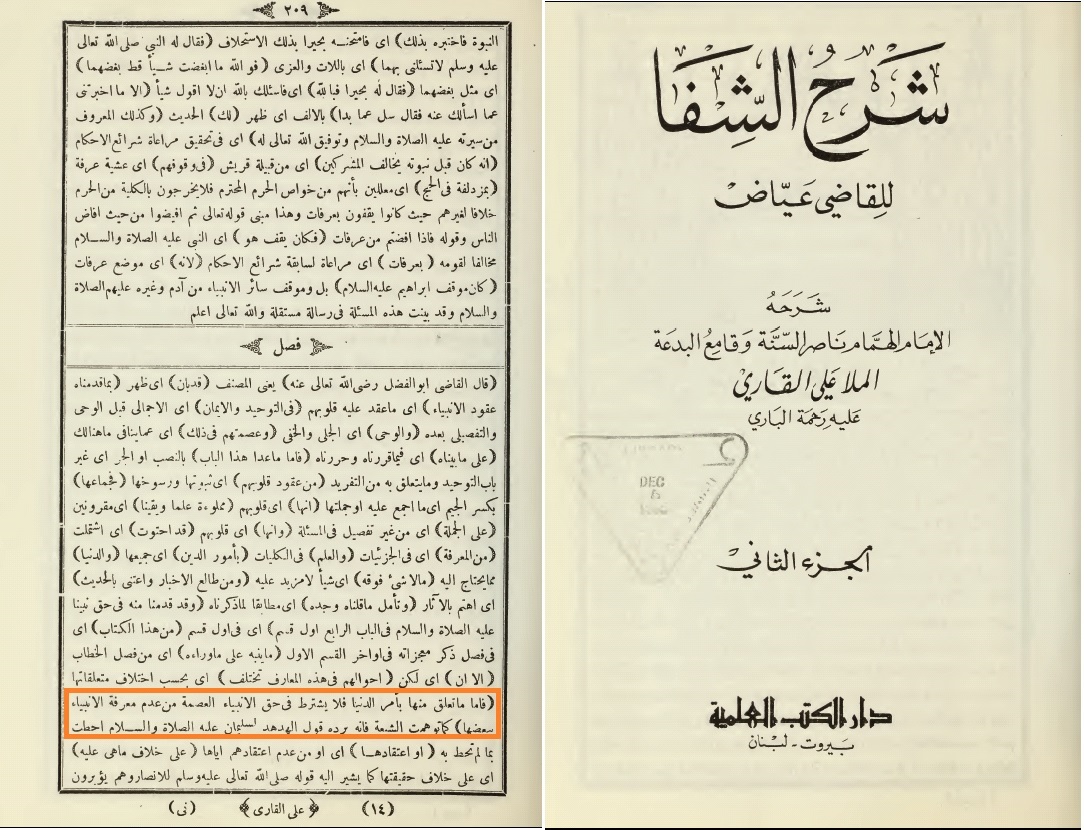 ﴿ ٢٠٩ ﴾
النبوة فاختبره بذلك) اى فامتحنه بحيرا بذلك الاستحلاف (فقال له النبى صلى الله تعالى
عليه وسلم لاتسئلنى بهما) اى باللات والعزى (فو الله ما ابغضت شيأ قط بغضهما)
اى مثل بغضهما (فقال له بحيرا فبالله) اى فاسئلك بالله ان لا اقول شيأ (الا ما اخبرتنى
عما اسألك عنه فقال سل عما بدا) بالالف اى ظهر (لك) الحديث (وكذلك المعروف
من سيرته عليه الصلاة والسلام وتوفيق الله تعالى له) اى فى تحقيق مراعاة شرائع الاحكام
(انه كان قبل نبوته يخالف المشركين) اى من قبيلة قريش (فى وقوفهم) اى عشية عرفة
(بمزدلفة فى الحج) اى معللين بأنهم من خواص الحرم المحترم فلا يخرجون بالكلية من الحرم
خلافا لغيرهم حيث كانوا يقفون بعرفات وهذا مبنى قوله تعالى ثم افيضوا من حيث افاض
الناس وقوله فاذا افضتم من عرفات (فكان يقف هو) اى النبى عليه الصلاة والسلام
مخالفا لقومه (بعرفات) اى مراعاة لسابقة شرائع الاحكام (لانه) اى موضع عرفات
(كان موقف ابراهيم عليه السلام) بل وموقف سائر الانبياء من آدم وغيره عليهم الصلاة
والسلام وقد بينت هذه المسئلة فى رسالة مستقلة والله تعالى اعلم
﴿ فصل ﴾
(قال القاضى ابو الفضل رضى الله تعالى عنه) يعنى المصنف (قد بان) اى ظهر (بما قدمناه
عقود الانبياء) اى ما عقد عليه قلوبهم (فى التوحيد والايمان) اى الاجمالى قبل الوحى
والتفصيلى بعده (والوحى) اى الجلى والخفى (وعصمتهم فى ذلك) اى عما ينافى ما هنالك
(على ما بيناه) اى فيما قررناه وحررناه (فاما ما عدا هذا الباب) بالنصب او الجر اى غير
باب التوحيد وما يتعلق به من التفريد (من عقود قلوبهم) اى ثبوتها ورسوخها (فجماعها)
بكسر الجيم اى ما اجمع عليه او جملتها (انها) اى قلوبهم (مملوءة علما ويقينا) اى مقرونين
(على الجملة) اى من غير تفصيل فى المسئلة (وانها) اى قلوبهم (قد احتوت) اى اشتملت
(من المعرفة) اى فى الجزئيات (والعلم) فى الكليات (بأمور الدين) اى جميعها (والدنيا)
مما يحتاج اليه (ما لا شئ فوقه) اى شيأ لا مزيد عليه (ومن طالع الاخبار واعتنى بالحديث)
اى اهتم بالآثار (وتأمل ما قلناه وجده) اى مطابقا لما ذكرناه (وقد قدمنا منه فى حق نبينا
عليه الصلاة والسلام فى الباب الرابع اول قسم) اى فى اول قسم (من هذا الكتاب) اى
فى فصل ذكر معجزاته فى اواخر القسم الاول (ما ينبه على ما وراءه) اى من فصل الخطاب
(الا ان) اى لكن (احوالهم فى هذه المعارف تختلف) اى بحسب اختلاف متعلقاتها
(فاما ما تعلق منها بأمر الدنيا فلا يشترط فى حق الانبياء العصمة من عدم معرفة الانبياء
ببعضها) كما توهمت الشيعة فانه يرده قول الهدهد لسليمان عليه الصلاة والسلام احطت
بما لم تحط به (او اعتقادها) اى او من عدم اعتقادهم اياها (على خلاف ما هى عليه)
اى على خلاف حقيقتها كما يشير اليه قوله صلى الله تعالى عليه وسلم للانصار وهم يؤبرون
(١٤) ﴿ على القارى ﴾ (نى)
شَرْحُ الشِّفَا
للِقَاضِي عَيَّاضْ
شَرَحَهُ
الإمَام الهمَام نَاصر السّنَّة وَقَامِعُ البدعَة
الملا عَلي القَاريْ
عَليه رَحمَة البَاري
DEC
الجزء الثانيْ
دار الكتب العلمية
بَيروت - لبنَان